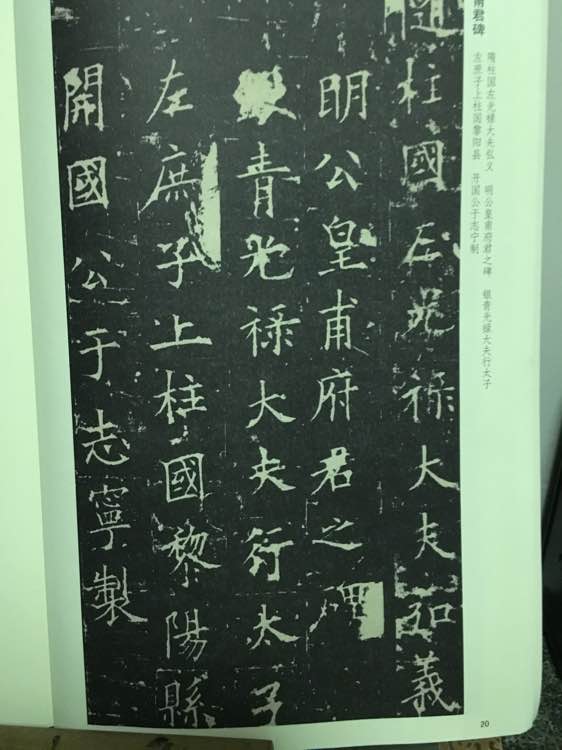 甫君碑
隋柱国左光禄大夫弘义 明公皇甫府君之碑 银青光禄大夫行太子
左庶子上柱国黎阳县 开国公于志宁制
隨柱國左光禄大夫弘義
明公皇甫府君之碑
銀青光禄大夫行太子
左庶子上柱國黎陽縣
開國公于志寧製
20